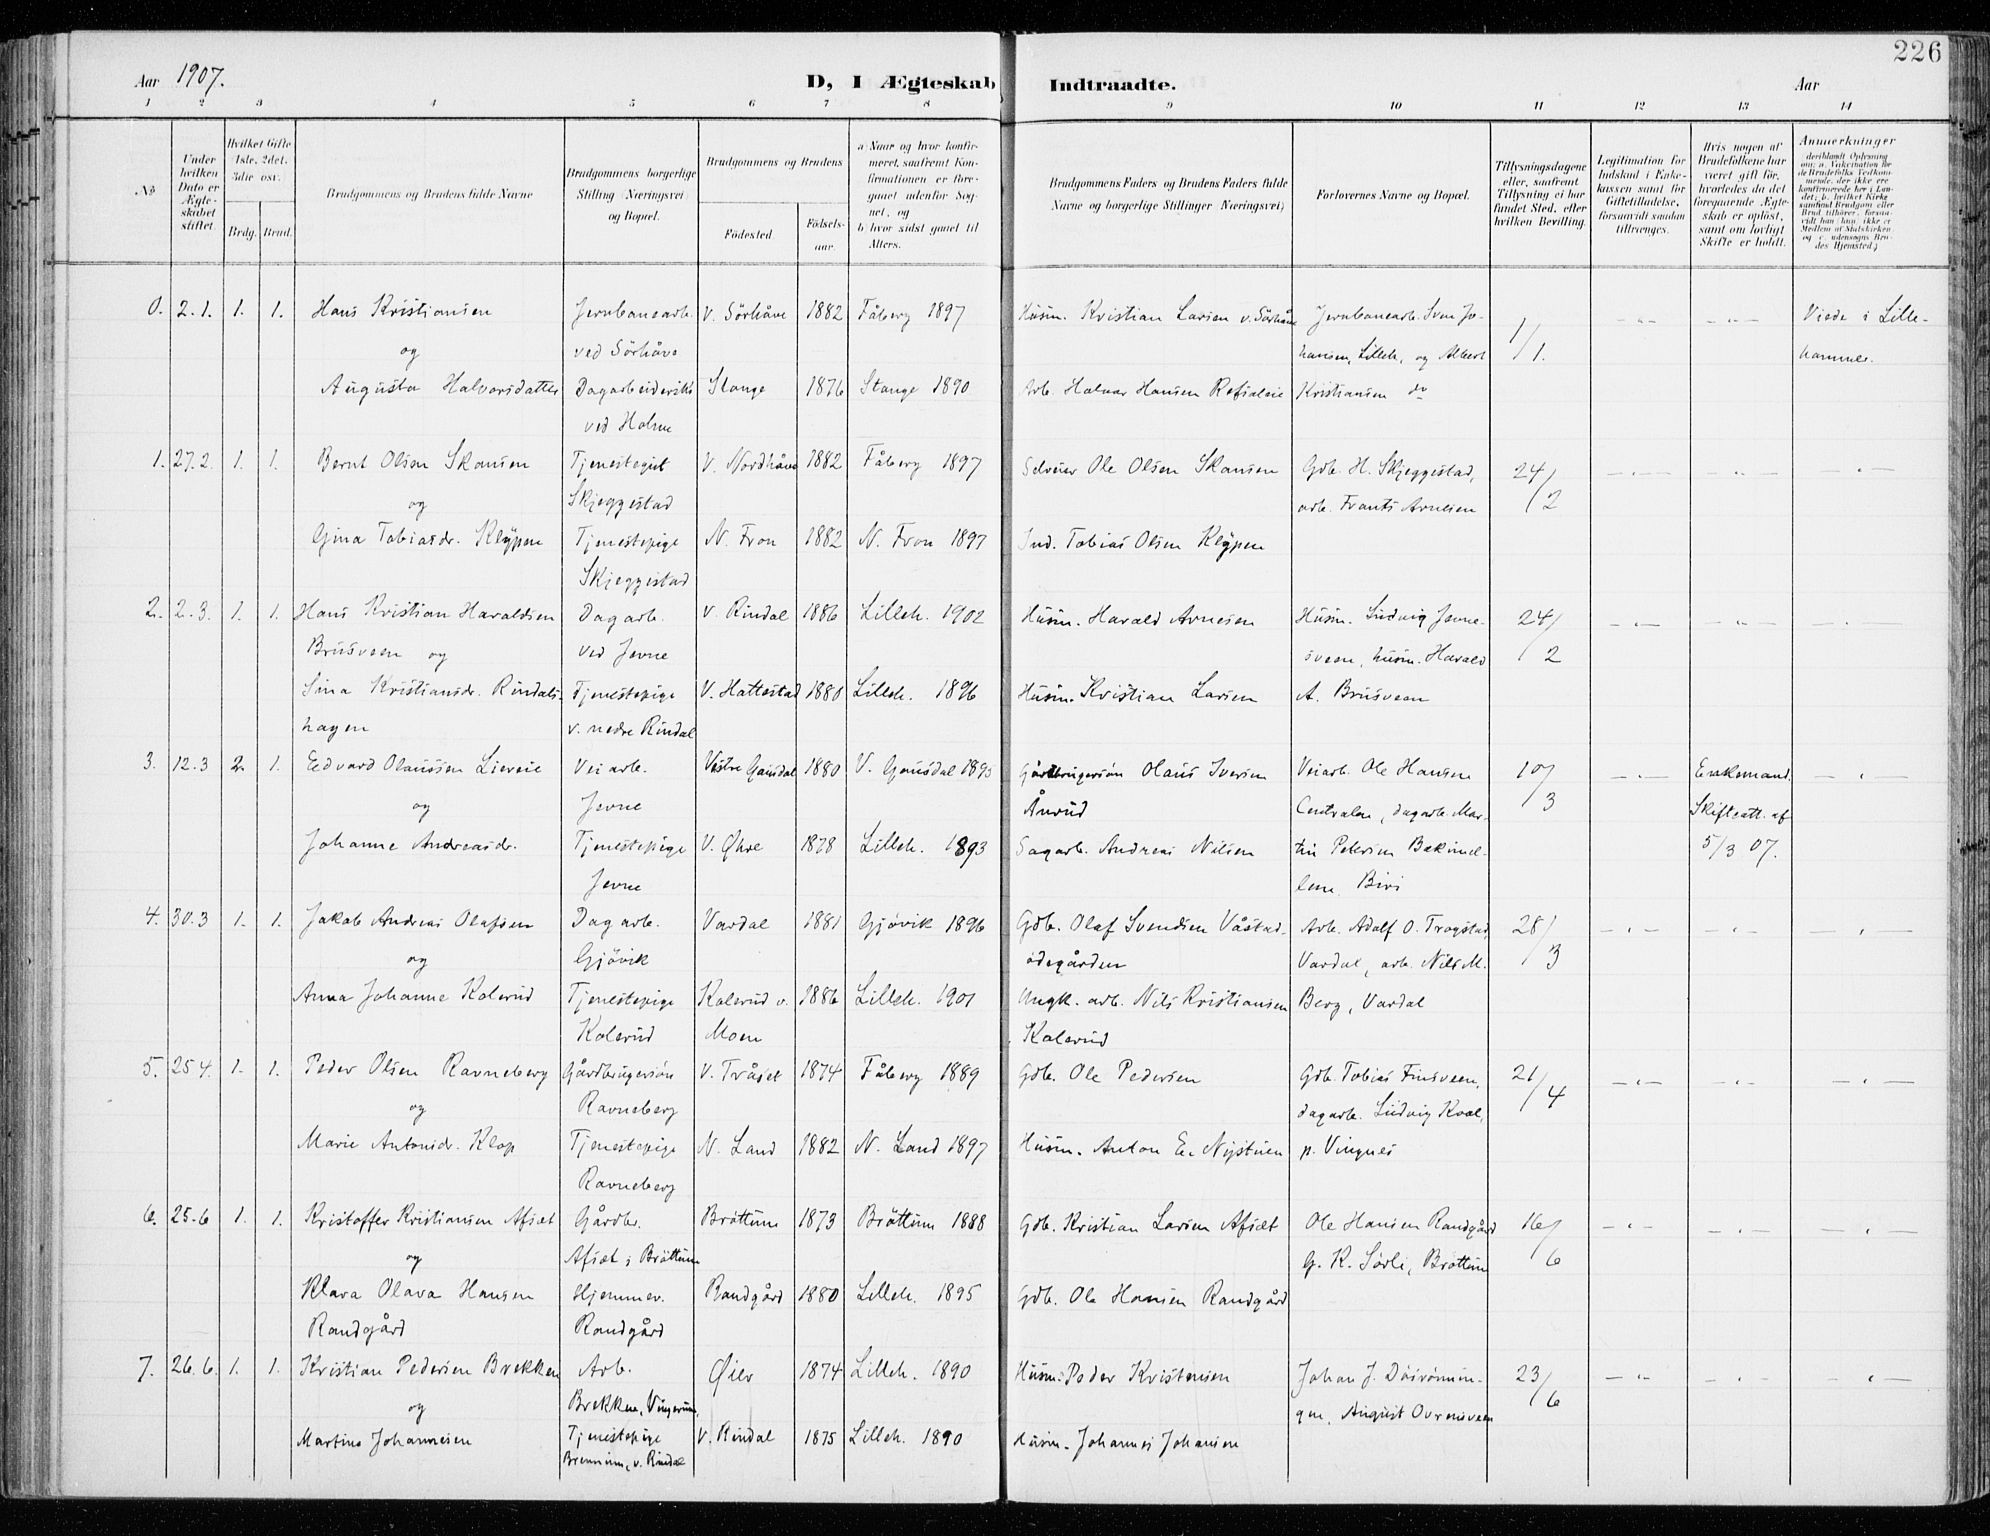 226
Aar 1907.
D, I Ægteskab Indtraadte.
Aar
1 2 3 4 5 6 7 8 9 10 11 12 13 14
No
Under hvilken Dato er Ægteskabet stiftet.
Hvilket Gifte 1ste, 2det, 3die osv.
Brdg. Brud.
Brudgommens og Brudens fulde Navne
Brudgommens borgerlige Stilling (Næringsvei) og Bopæl.
Brudgommens og Brudens
Fødested
Fødselsaar.
a. Naar og hvor konfirmeret, saafremt Konfirmationen er foregaaet udenfor Sognet, og
b. hvor sidst gaaet til Alters.
Brudgommens Faders og Brudens Faders fulde Navne og borgerlige Stillinger (Næringsvei)
Forlovernes Navne og Bopæl.
Tillysningsdagene eller, saafremt Tillysning ei har fundet Sted, efter hvilken Bevilling.
Legitimation for Indskud i Enkekassen samt for Giftetilladelse, forsaavidt saadan tiltrænges.
Hvis nogen af Brudefolkene har været gift før, hvorledes da det foregaaende Ægteskab er opløst, samt om lovligt Skifte er holdt.
Anmerkninger
deriblandt Oplysning om: a. Vakcination for de Brudefolks Vedkommende, der ikke ere konfirmerede her i Landet; b. hvilket Kirkesamfund Brudgom eller Brud tilhører, forsaavidt han (hun) ikke er Medlem af Statskirken, og c. udensogns Brudes Hjemsted.)
0. 2.1. 1. 1. Hans Kristiansen Jernbanearb. V. Sörhåve 1882 Fåberg 1897 Husm. Kristian Larsen v. Sörhåve Jernbanearb. Sven Jo- 1/1. -"- -"- Viede i Lille-
og ved Sörhåve hansen, Lilleh., og Albert hammer.
Augusta Halvorsdatter Dagarbeiderske Stange 1876 Stange 1890 Arb. Halvor Hansen Kristiansen do
ved Holme
1. 27.2. 1. 1. Bernt Olsen Skansen Tjenestegut V. Nordhåve 1882 Fåberg 1897 Selveier Ole Olsen Skansen Gdb. H. Skjeggestad, 24/2 -"- -"- -"-
og Skjeggestad arb. Frants Arnesen
Gina Tobiasdr. Kleypen Tjenestepige N. Fron 1882 N. Fron 1897 Ind. Tobias Olsen Kleypen
Skjeggestad
2. 2.3. 1. 1. Hans Kristian Haraldsen Dagarb. V. Rindal 1886 Lilleh. 1902 Husm. Harald Arnesen Husm. Ludvig Jevne- 24/2 -"- -"- -"-
Brusveen og ved Jevne sveen, husm. Harald
Sina Kristiansdr. Rindals- Tjenestepige V. Hattestad 1880 Lilleh. 1896 Husm. Kristian Larsen A. Brusveen
hagen v. nedre Rindal
3. 12.3 2. 1. Edvard Olaussen Lieveie Veiarb. Vestre Gausdal 1880 V. Gausdal 1895 Gårdbrugersön Olaus Iversen Veiarb. Ole Hansen 10/3 -"- Enkemand. -"-
og Jevne Ånrud Centralen, dagarb. Mar- Skifteatt. af
Johanne Andreasdr. Tjenestepige V. Øhre 1878 Lilleh. 1893 Sagarb. Andreas Nilsen tin Petersen 5/3 07.
Jevne Biri
4. 30.3 1. 1. Jakob Andreas Olafsen Dagarb. Vardal 1881 Gjövik 1896 Gdb. Olaf Svendsen Våstad- Arb. Adolf O. Trogstad, 28/3 -"- -"- -"-
og Gjövik ödegården Vardal, arb. Nils M.
Anna Johanne Kolerud Tjenestepige Kolerud v. 1886 Lilleh. 1901 Ungk. arb. Nils Kristiansen Berg, Vardal
Kolerud Moen Kolerud
5. 25 4. 1. 1. Peder Olsen Ravneberg Gårdbrugersön V. Tråset 1874 Fåberg 1889 Gdb. Ole Pedersen Gdb. Tobias Finsveen, 21/4 -"- -"- -"-
og Ravneberg dagarb. Ludvig Kval,
Marie Antonsdr. Klop Tjenestepige N. Land 1882 N. Land 1897 Husm. Anton E. Nystuen p. Vingnes
Ravneberg
6. 25.6 1. 1. Kristoffer Kristiansen Afsæt Gårdbr. Bröttum 1873 Bröttum 1888 Gdb. Kristian Larsen Afsæt Ole Hansen Randgård 16/6 -"- -"- -"-
og Afsæt i Bröttum G. K. Sörli, Bröttum
Klara Olava Hansen Hjemmev. Randgård 1880 Lilleh. 1895 Gdb. Ole Hansen Randgård
Randgård Randgård
7. 26.6. 1. 1. Kristian Pedersen Brekken Arb. Øier 1874 Lilleh. 1890 Husm. Peder Kristensen Johan J. 23/6 -"- -"- -"-
og Brekken, Vingerum. August
Martine Johannesen Tjenestepige V. Rindal 1875 Lilleh. 1890 Husm. Johannes Johansen
v. Rindal